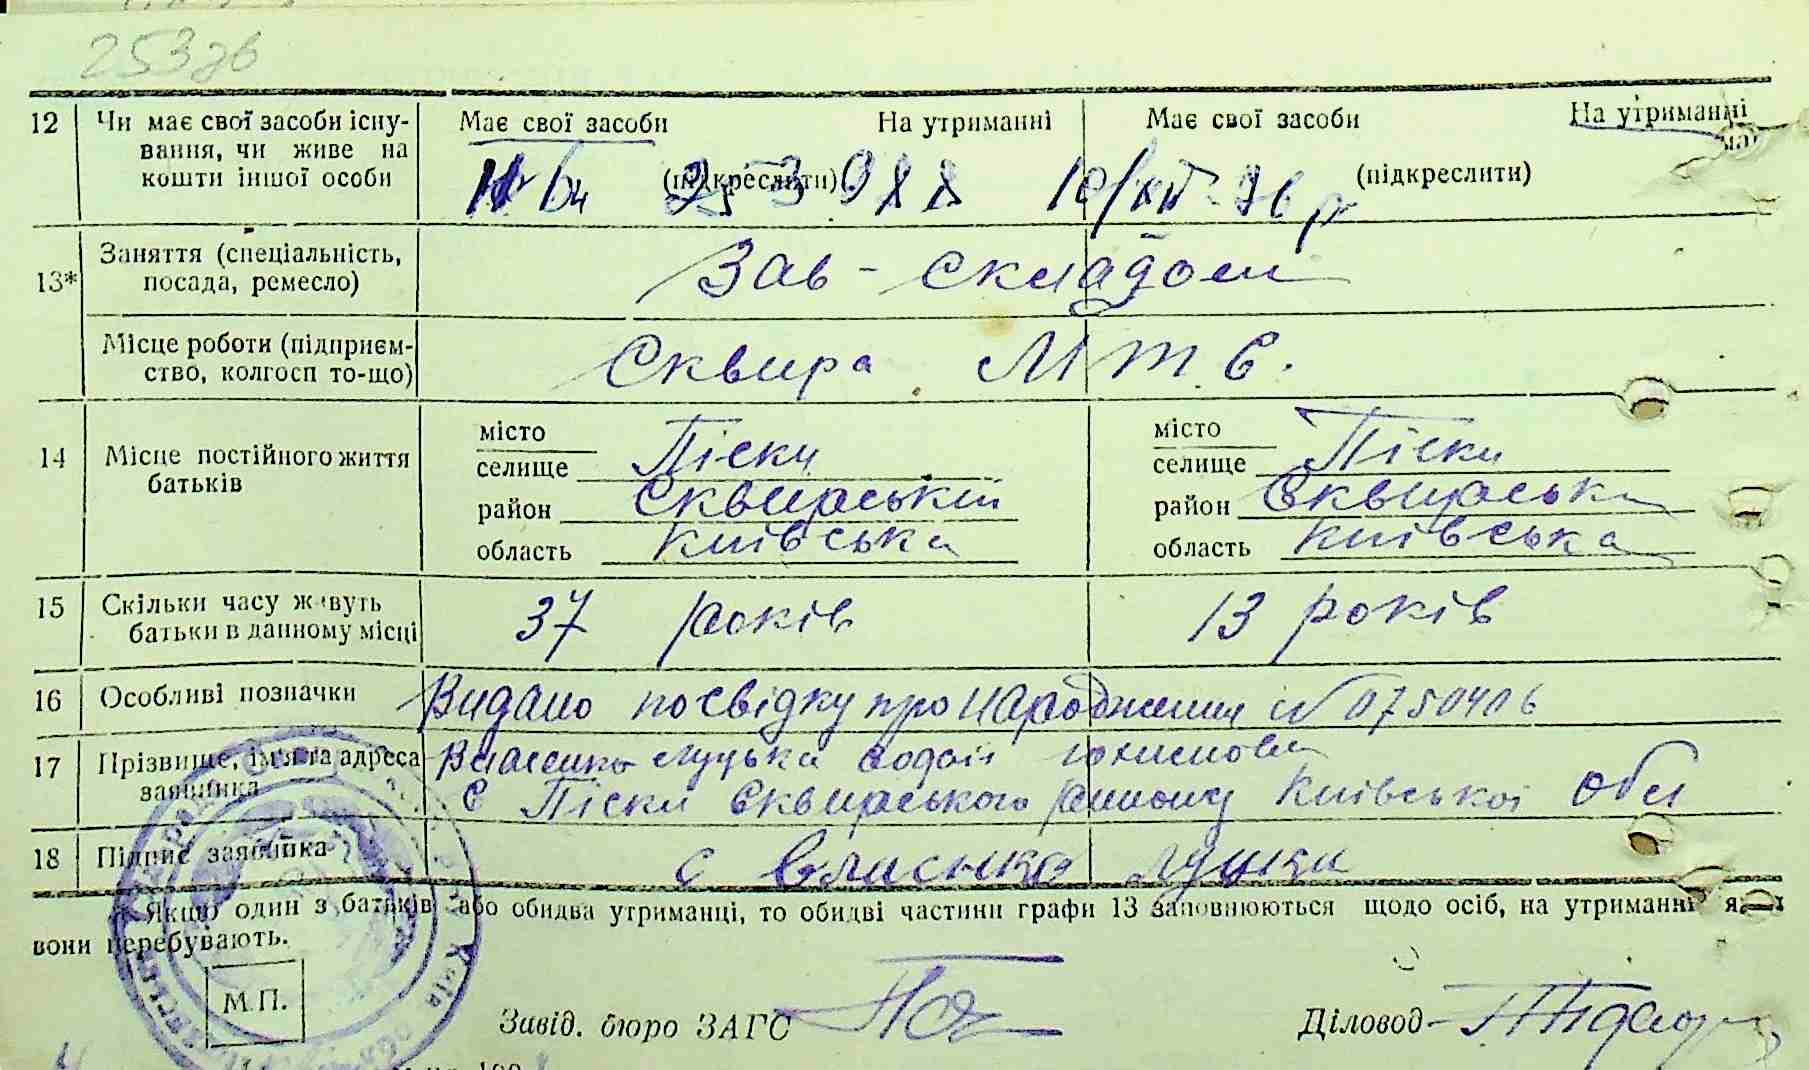 253 зв
12 Чи має свої засоби існу- Має свої засоби На утриманні Має свої засоби На утриманні
вання, чи живе на
кошти іншої особи (підкреслити) (підкреслити)
13* Заняття (спеціальність, Зав-складом
посада, ремесло)
Місце роботи (підприєм- Сквира М Т С.
ство, колгосп то-що)
місто місто
14 Місце постійного життя селище Піски селище Піски
батьків район Сквирський район Сквирськи
область Київська область Київська
15 Скільки часу живуть 37 років 13 років
батьки в данному місці
16 Особливі позначки Видано посвідку про народження № 0750406
17 Прізвище, ім'я та адреса Власенко
заявника с Піски Сквирського району Київської обл
18 Підпис заявника Власенко
Якщо один з батьків або обидва утриманці, то обидві частини графи 13 заповнюються щодо осіб, на утриманні
вони перебувають.
М.П.
Завід. бюро ЗАГС Діловод